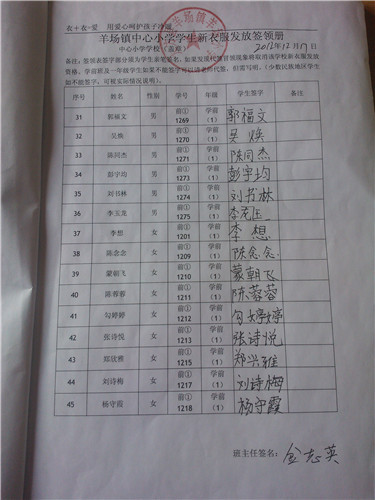 衣+衣=爱 用爱心呵护孩子冷暖
羊场镇中心小学学生新衣服发放签领册
中心小学学校（盖章） 2012年12月17日
序号 姓名 性别 学号 年级 学生签字 备注
31 郭福文 男 前①1269 学前（1） 郭福文
32 吴焕 男 前①1270 学前（1） 吴焕
33 陈同杰 男 前①1271 学前（1） 陈同杰
34 彭宇均 男 前①1273 学前（1） 彭宇均
35 刘书林 男 前①1274 学前（1） 刘书林
36 李玉龙 男 前①1275 学前（1）
37 李想 女 前①1201 学前（1） 李想
38 陈念念 女 前①1209 学前（1） 陈念念
39 蒙朝飞 女 前①1210 学前（1） 蒙朝飞
40 陈蓉蓉 女 前①1211 学前（1） 陈蓉蓉
41 勾婷婷 女 前①1212 学前（1） 勾婷婷
42 张诗悦 女 前①1213 学前（1） 张诗悦
43 郑欣雅 女 前①1215 学前（1） 郑兴雅
44 刘诗梅 女 前①1217 学前（1） 刘诗梅
45 杨守霞 女 前①1218 学前（1） 杨守霞
班主任签名： 金志英